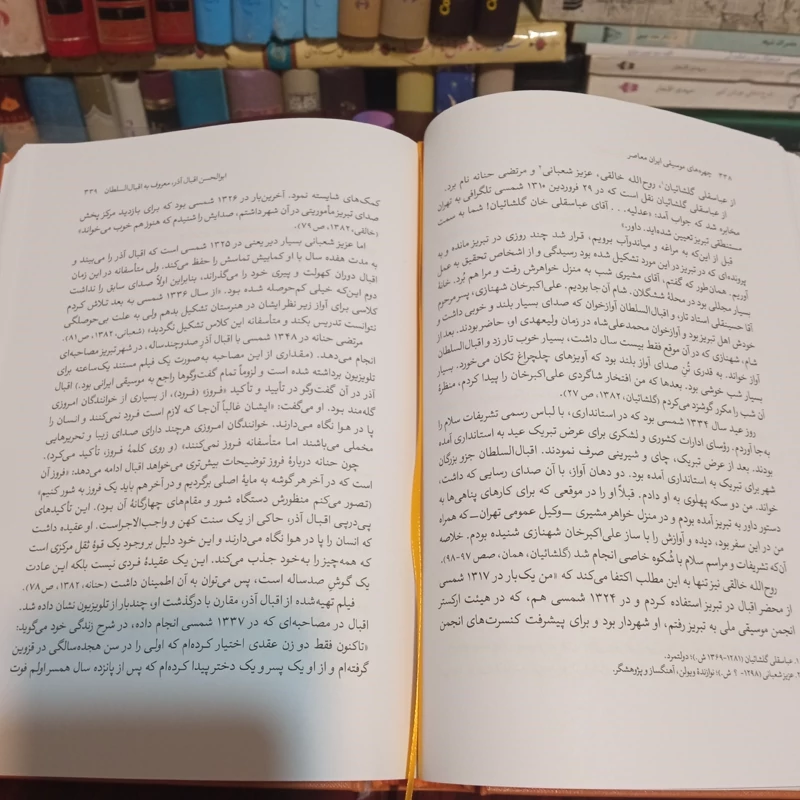 ۳۳۸ چهره‌های موسیقی ایران معاصر
از عباسقلی گلشائیان۱، روح‌الله خالقی، عزیز شعبانی۲ و مرتضی حنانه نام برد.
از عباسقلی گلشائیان نقل است که در ۲۹ فروردین ۱۳۱۰ شمسی تلگرافی به تهران
مخابره شد که جواب آمد: «عدلیه. . . آقای عباسقلی خان گلشائیان! شما به سمت
مستنطقی تبریز تعیین شده‌اید. داور.»
قبل از این‌که به مراغه و میاندوآب برویم، قرار شد چند روزی در تبریز مانده و به
پرونده‌ای که در تبریز در این مورد تشکیل شده بود رسیدگی و از اشخاص تحقیق به عمل
آوریم. همان‌طور که گفتم، آقای مشیری شب به منزل خواهرش رفت و مرا هم بُرد. خانهٔ
بسیار مجللی بود در محلهٔ ششگلان. شام آن‌جا بودیم. علی‌اکبرخان شهنازی، پسر مرحوم
آقا حسینقلی استاد تار، و اقبال‌السلطان آوازخوان که صدای بسیار بلند و خوبی داشت و
خودش اهل تبریز بود و آوازخوان محمدعلی‌شاه در زمان ولیعهدی او، حاضر بودند. بعد از
شام، شهنازی که در آن موقع فقط بیست سال داشت، بسیار خوب تار زد و اقبال‌السلطان
آواز خواند. به قدری تُنِ صدای آواز بلند بود که آویزهای چلچراغ تکان می‌خورد. بسیار
بسیار شب خوشی بود. بعدها که من افتخار شاگردی علی‌اکبرخان را پیدا کردم، منظرهٔ
آن شب را مکرر گوشزد می‌کردم (گلشائیان، ۱۳۸۲، ص ۲۷).
روز عید سال ۱۳۳۴ شمسی بود که در استانداری، با لباس رسمی تشریفات سلام را
به‌جا آوردم. رؤسای ادارات کشوری و لشکری برای عرض تبریک عید به استانداری آمده
بودند. بعد از عرض تبریک، چای و شیرینی صرف نمودند. اقبال‌السلطان جزو بزرگان
شهر برای تبریک به استانداری آمده بود. دو دهان آواز، با آن صدای رسایی که داشت،
خواند. من دو سکه پهلوی به او دادم. قبلاً او را در موقعی که برای کارهای پناهی‌ها به
دستور داور به تبریز آمده بودم و در منزل خواهر مشیری ــ وکیل عمومی تهران ــ که همراه
من در این سفر بود، دیده و آوازش را با ساز علی‌اکبرخان شهنازی شنیده بودم. خلاصه
آن‌که تشریفات و مراسم سلام با شُکوه خاصی انجام شد (گلشائیان، همان، صص ۹۷-۹۸).
روح‌الله خالقی نیز تنها به این مطلب اکتفا می‌کند که «من یک‌بار در ۱۳۱۷ شمسی
از محضر اقبال در تبریز استفاده کردم و در ۱۳۲۴ شمسی هم، که در هیئت ارکستر
انجمن موسیقی ملی به تبریز رفتم، او شهردار بود و برای پیشرفت کنسرت‌های انجمن
۱. عباسقلی گلشائیان (۱۲۸۱-۱۳۶۹ ش.)؛ دولتمرد.
۲. عزیز شعبانی (۱۲۹۸- ؟ ش.)؛ نوازندهٔ ویولن، آهنگساز و پژوهشگر.
ابوالحسن اقبال آذر، معروف به اقبال‌السلطان ۳۳۹
کمک‌های شایسته نمود. آخرین‌بار در ۱۳۲۶ شمسی بود که برای بازدید مرکز پخش
صدای تبریز مأموریتی در آن شهر داشتم، صدایش را شنیدم که هنوز هم خوب می‌خواند»
(خالقی، ۱۳۸۲، ص ۷۹).
اما عزیز شعبانی بسیار دیر یعنی در ۱۳۲۵ شمسی است که اقبال آذر را می‌بیند و
به مدت هفده سال با او کمابیش تماسش را حفظ می‌کند. ولی متأسفانه در این زمان
اقبال دوران کهولت و پیری خود را می‌گذراند. بنابراین اولاً صدای سابق را نداشت
دوم این‌که خیلی کم‌حوصله شده بود. «از سال ۱۳۳۶ شمسی به بعد تلاش کردم
کلاسی برای آواز زیر نظر ایشان در هنرستان تشکیل بدهم ولی به علت بی‌حوصلگی
نتوانست تدریس بکند و متأسفانه این کلاس تشکیل نگردید» (شعبانی، ۱۳۸۲، ص ۸۱).
مرتضی حنانه در ۱۳۴۸ شمسی با اقبال آذرِ صدوچندساله، در شهر تبریز مصاحبه‌ای
انجام می‌دهد. (مقداری از این مصاحبه به‌صورت یک فیلم مستند یک‌ساعته برای
تلویزیون برداشته شده است و لزوماً تمام گفت‌وگوها راجع به موسیقی ایرانی بود.) اقبال
آذر در آن گفت‌وگو در تأیید و تأکید «فروز» (فرود)، از بسیاری از خوانندگان امروزی
گله‌مند بود. او می‌گفت: «ایشان غالباً آن‌جا که لازم است فرود نمی‌کنند و انسان را
پا در هوا نگاه می‌دارند. خوانندگان امروزی هرچند دارای صدای زیبا و تحریرهایی
مخملی می‌باشند اما متأسفانه فروز نمی‌کنند» (و روی کلمهٔ فروز، تأکید می‌کرد).
چون حنانه دربارهٔ فروز توضیحات بیش‌تری می‌خواهد اقبال ادامه می‌دهد: «فروز آن
است که در آخر هر گوشه به مایهٔ اصلی برگردیم و در آخر هم باید یک فروز به شور کنیم»
(تصور می‌کنم منظورش دستگاه شور و مقام‌های چهارگانهٔ آن بود). این تأکیدهای
پی‌درپی اقبال آذر، حاکی از یک سنت کهن و واجب‌الاجراست. او عقیده داشت
که انسان را پا در هوا نگاه می‌دارند و این خود دلیل بر وجود یک قوهٔ ثقل مرکزی است
که همه‌چیز را به‌خود جذب می‌کند. این یک عقیدهٔ فردی نیست بلکه این عادت
یک گوشِ صدساله است، پس می‌توان به آن اطمینان داشت (حنانه، ۱۳۸۲، ص ۷۸).
فیلم تهیه‌شده از اقبال آذر، مقارن با درگذشت او، چندبار از تلویزیون نشان داده شد.
اقبال در مصاحبه‌ای که در ۱۳۳۷ شمسی انجام داده، در شرح زندگی خود می‌گوید:
«تاکنون فقط دو زن عقدی اختیار کرده‌ام که اولی را در سن هجده‌سالگی در قزوین
گرفته‌ام و از او یک پسر و یک دختر پیدا کرده‌ام که پس از پانزده سال همسر اولم فوت